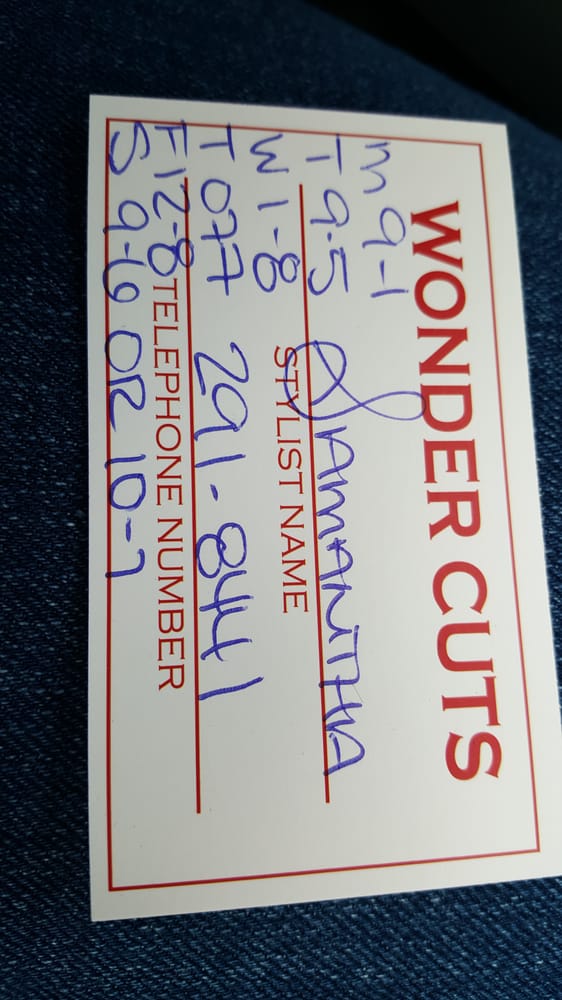 WONDER CUTS
M 9-1
T 9-5 SAMANTHA
W 1-8 STYLIST NAME
T OFF 291-8441
F 12-8 TELEPHONE NUMBER
S 9-6 OR 10-7